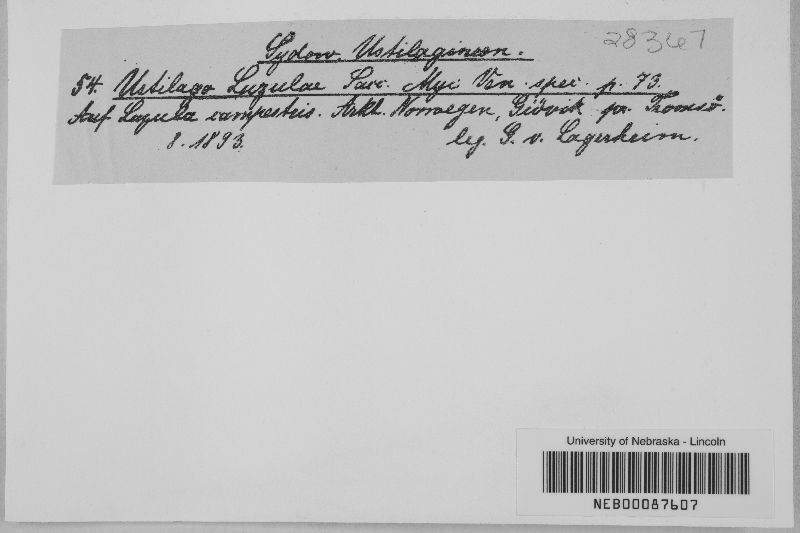 28367
Sydow, Ustilagineen.
54. Ustilago Luzulae Sacc. Myc. Ven. spec. p. 73.
Auf Luzula campestris. Arkt. Norwegen, Giövik pr. Tromsö.
8. 1893. leg. G. v. Lagerheim.
University of Nebraska - Lincoln
NEB00087607